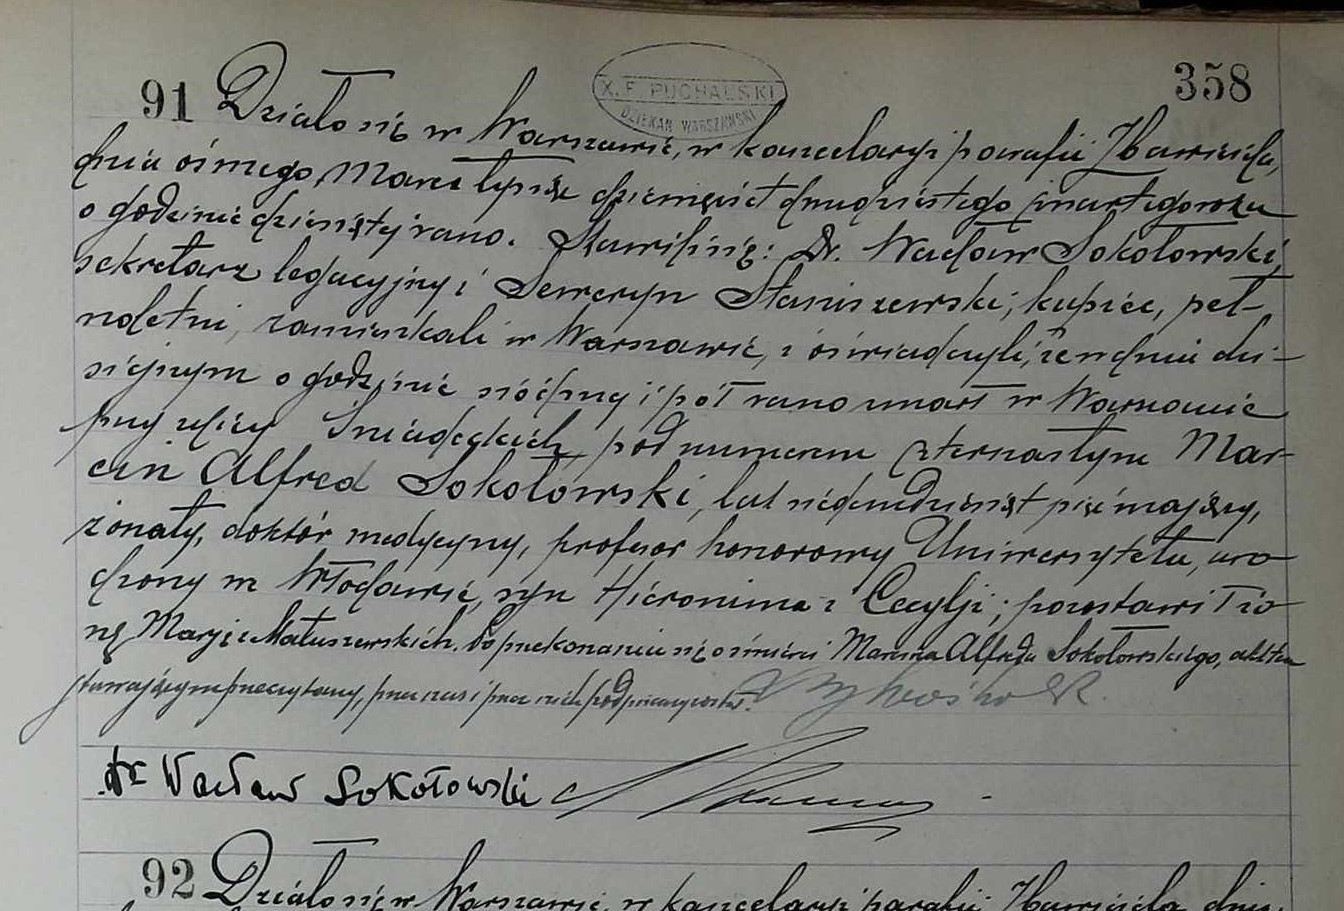 358
X. F. PUCHALSKI
DZIEKAN WARSZAWSKI
91 Działo się w Warszawie, w kancelaryi parafii Zbawiciela,
dnia ósmego Marca tysiąc dziewięćset dwudziestego czwartego roku
o godzinie dziesiątej rano. Stawili się: Dr. Wacław Sokołowski,
sekretarz legacyjny i Seweryn Staniszewski, kupiec, peł-
noletni, zamieszkali w Warszawie, i oświadczyli, że w dniu dzi-
siejszym o godzinie siódmej i pół rano umarł w Warszawie
przy ulicy Śniadeckich, pod numerem czternastym Mar-
cin Alfred Sokołowski, lat siedemdziesiąt pięć mający,
żonaty, doktór medycyny, profesor honorowy Uniwersytetu, uro-
dzony w Włodawie, syn Hieronima i Cecylji; pozostawił żo-
nę Marję z Matuszewskich. Po przekonaniu się o śmierci Marcina Alfreda Sokołowskiego, akt ten
stawającym przeczytany, przez nas i przez nich podpisany został.
dr Wacław Sokołowski
92 Działo się w Warszawie, w kancelaryi parafii Zbawiciela, dnia